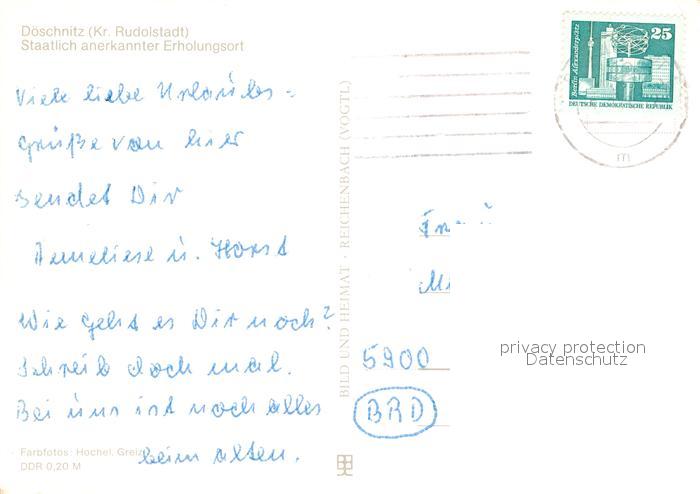 Döschnitz (Kr. Rudolstadt)
Staatlich anerkannter Erholungsort
Viele liebe Urlaubs-
grüße von hier
sendet Dir
Anneliese u. Horst
Wie geht es Dir noch?
Schreib doch mal.
Bei uns ist noch alles
beim alten.
Farbfotos: Hochel, Greiz
DDR 0,20 M
BILD UND HEIMAT · REICHENBACH (VOGTL)
Berlin, Alexanderplatz
25
DEUTSCHE DEMOKRATISCHE REPUBLIK
m
5900
BRD
privacy protection
Datenschutz